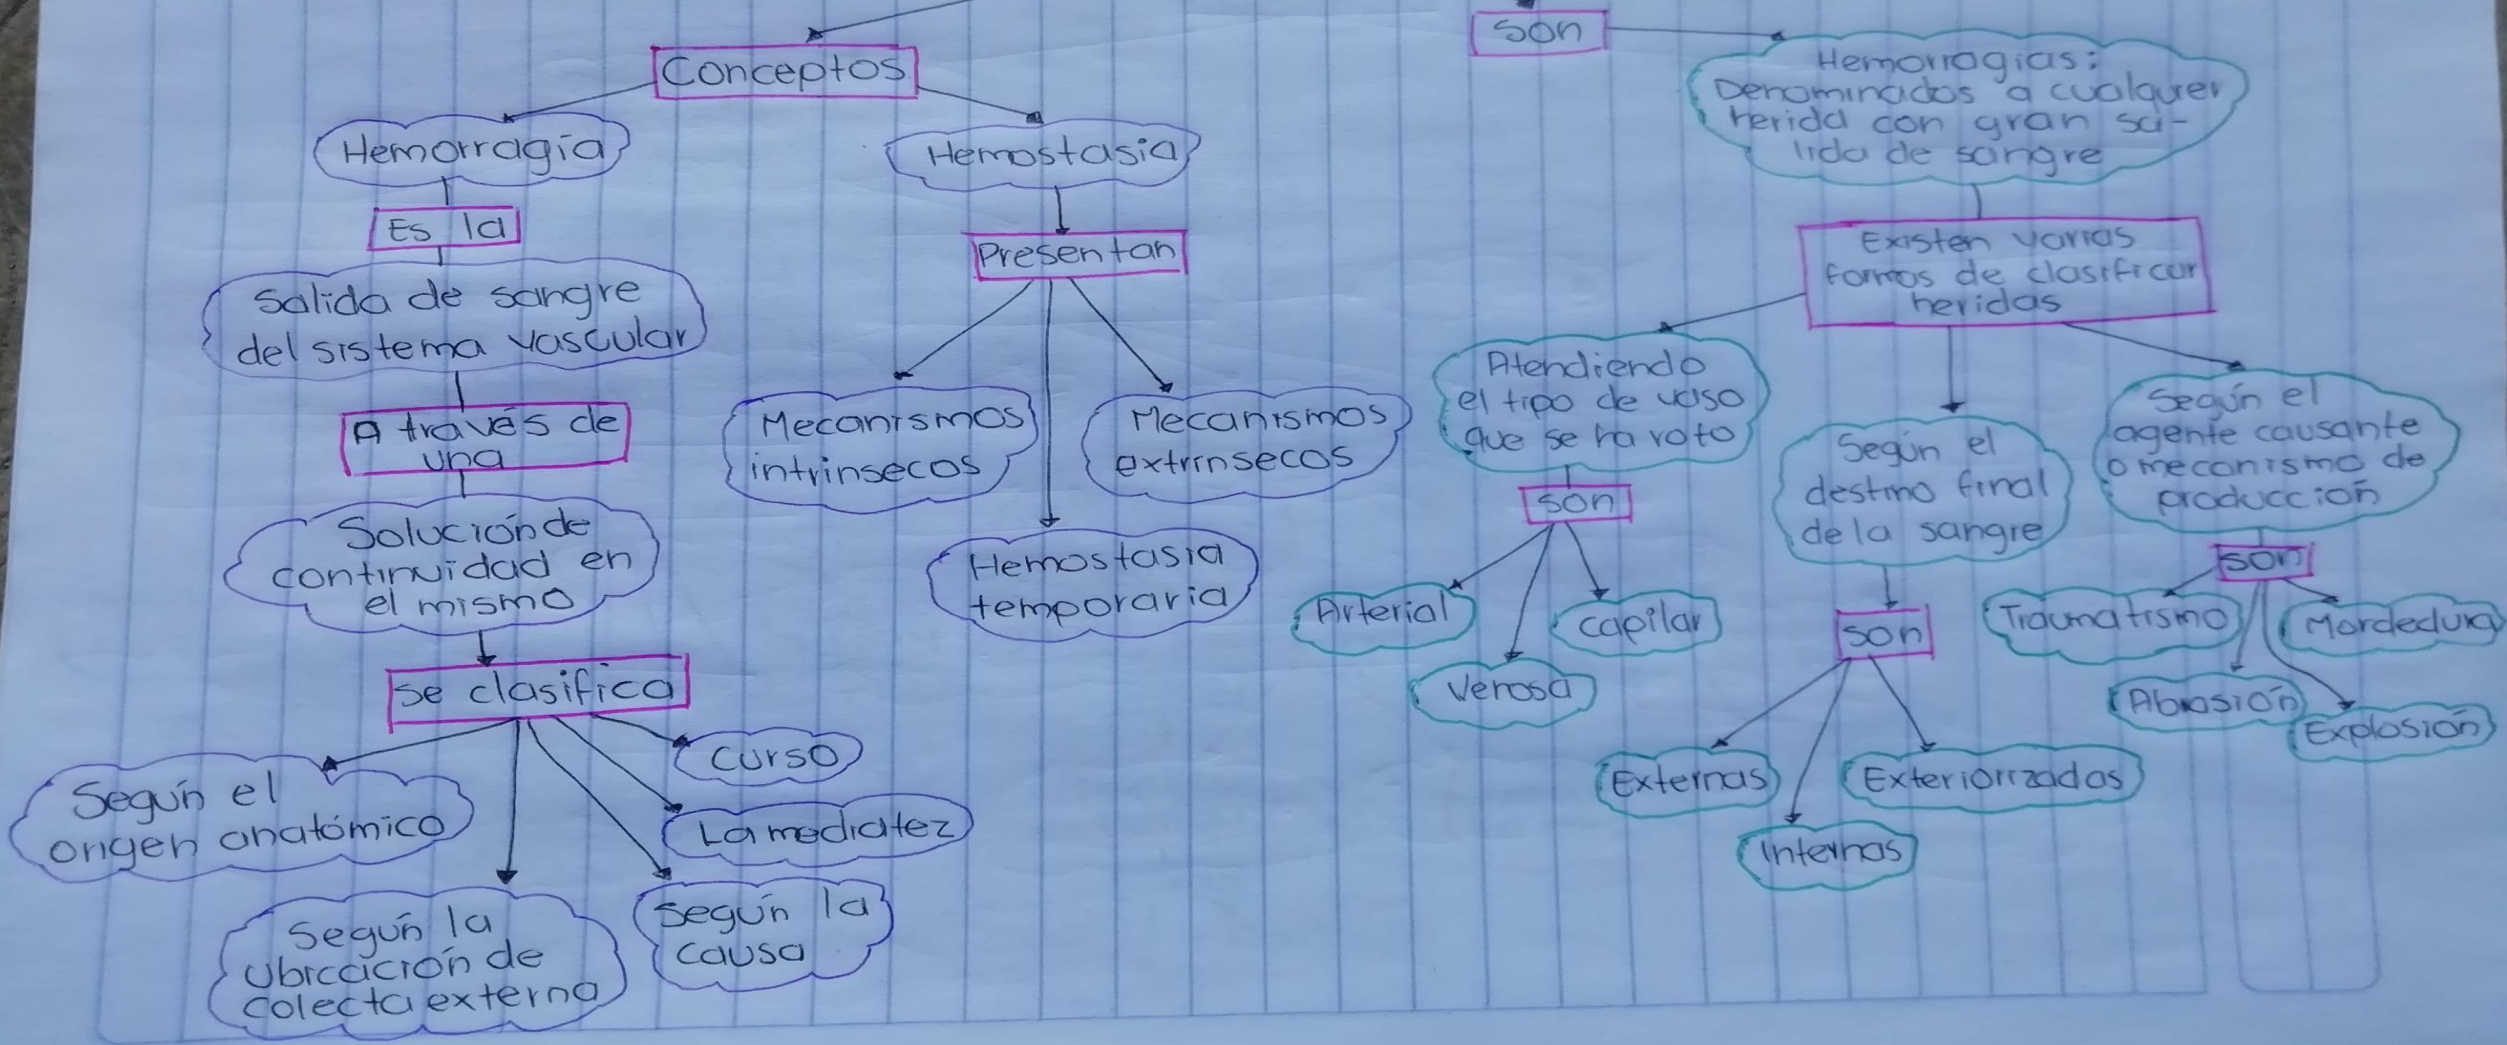 Conceptos
Hemorragia
Es la
Salida de sangre
del sistema vascular
A través de
una
Solución de
continuidad en
el mismo
se clasifica
Según el
origen anatómico
Según la
ubicación de
colecta externa
Según la
causa
La mediatez
curso
Hemostasia
Presentan
Mecanismos
intrinsecos
Hemostasia
temporaria
Mecanismos
extrinsecos
son
Hemorragias:
Denominados a cualquier
herida con gran sa-
lida de sangre
Existen varias
formas de clasificar
heridas
Atendiendo
el tipo de vaso
que se ha roto
son
Arterial
Venosa
capilar
Según el
destino final
de la sangre
son
Externas
Internas
Exteriorizadas
Según el
agente causante
o mecanismo de
producción
son
Traumatismo
Abrasión
Explosión
Mordedura